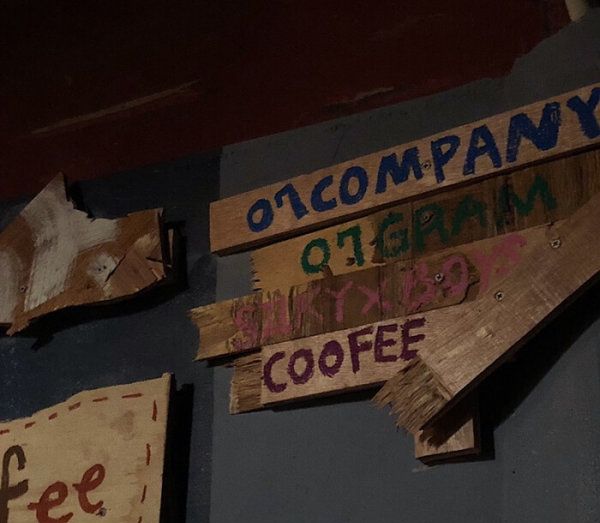 07COMPANY
07GRAM
SILKYXBOYS
COOFEE
fee